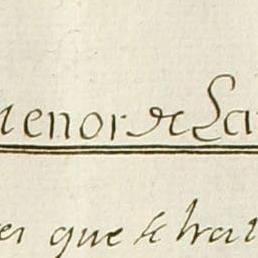 menor de La
que se trat